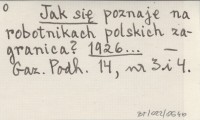 0
Jak się poznaje na
robotnikach polskich za-
granica? 1926... —
Gaz. Podh. 14, nr 3 i 4.